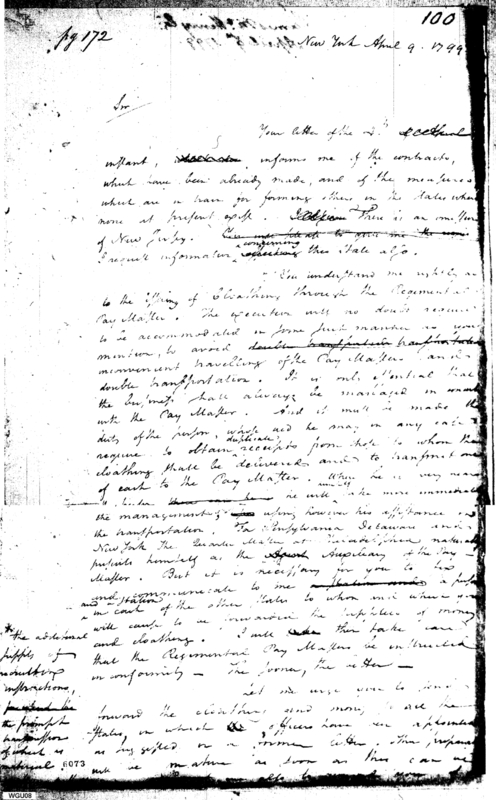 100
pg 172
New York April 9. 1799
Sir
Your letter of the
instant, informs me of the contracts,
which have been already made, and of the measures
which are in train for forming others in the states where
none at present exist. There is an omission
of New Jersey.
I request information concerning this State also.
You understand me rightly as
to the issuing of Cloathing through the Regimental
Pay Master. The execution will no doubt require
to be accommodated in some such manner as you
mention, to avoid double transportation
inconvenient travelling of the Pay Masters and
double transportation. It is only essential that
the business shall always be managed in
with the Pay Master. And it must be made the
duty of the person, whose aid he may in any case
require to obtain duplicate receipts from those to whom the
cloathing shall be delivered and to transmit one
of each to the Pay Master. When he is very near
he will take more immediate
the management using however his assistance in
the transportation. In Pensylvania Delaware and
New York The Quarter Master at Philadelphia naturally
presents himself as the Auxiliary of the Pay
Master. But it is necessary for you to
and communicate to me a person
and station
in each of the other States to whom and where you
will cause to be forwarded the supplies of money
and cloathing. I will then take care
that the Regimental Pay Masters be instructed
in conformity — The sooner, the better —
Let me urge you to send
forward the cloathing and money to all the
States, in which officers have been appointed
as suggested in a former letter. The
will be mature as soon as this can
* the additional
supplies of
recruiting
instructions,
the prompt
transmission
of which is
material.
6073
WGU08